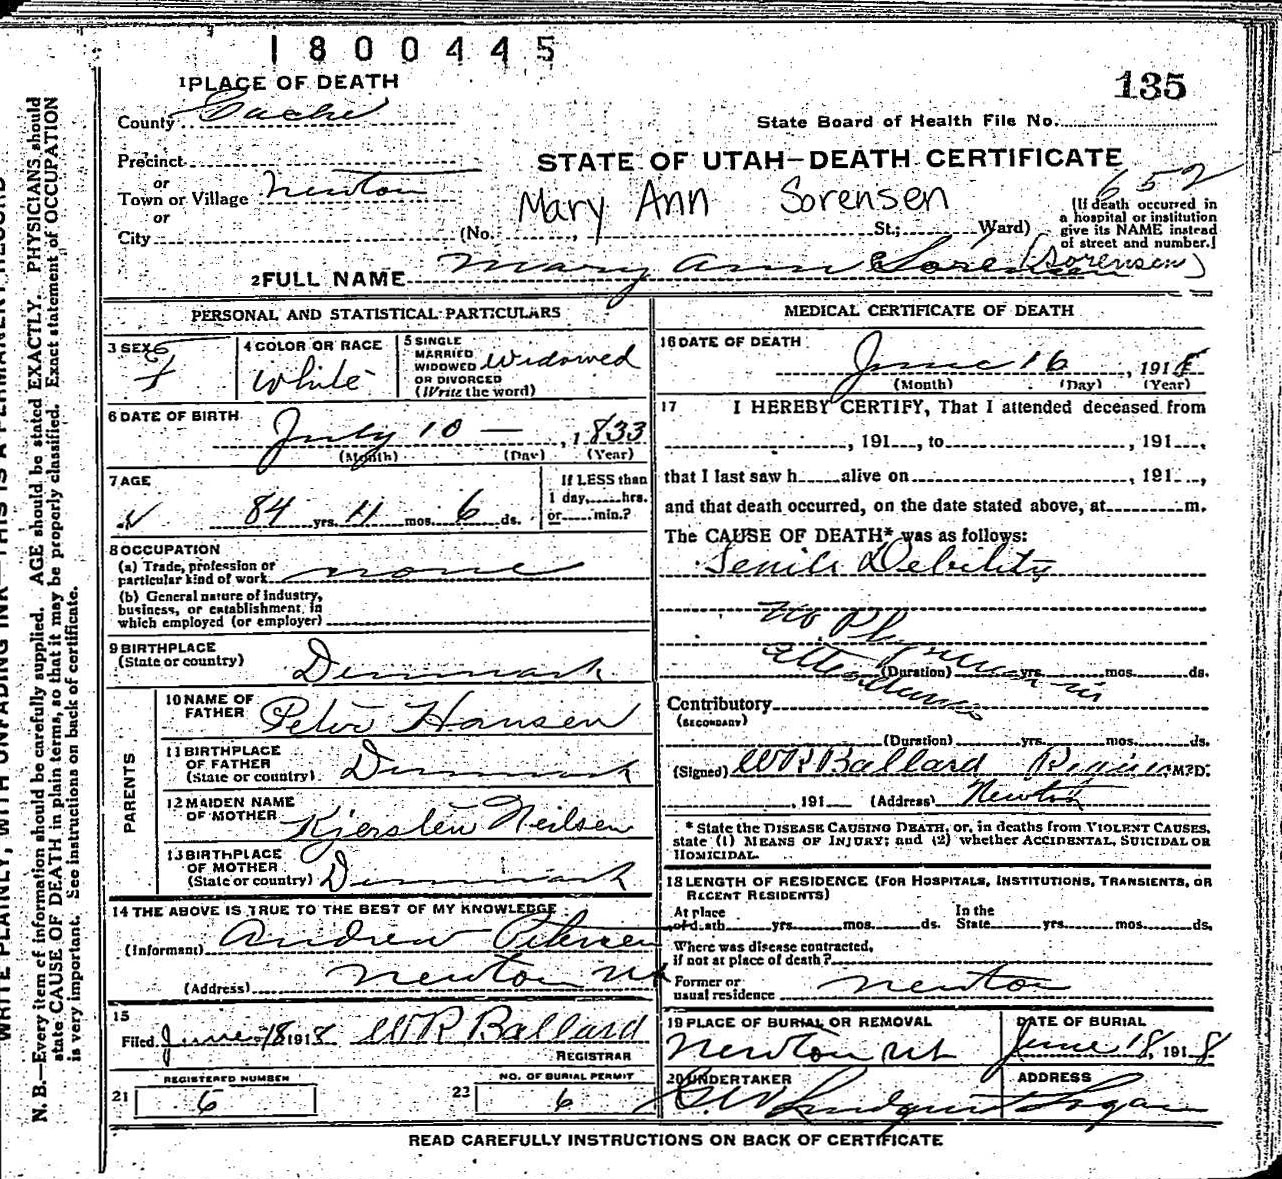 1800445
135
1 PLACE OF DEATH
County Cache
State Board of Health File No.
Precinct
or
STATE OF UTAH—DEATH CERTIFICATE
Town or Village Newton
Mary Ann Sorensen
652
or
(If death occurred in
a hospital or institution
give its NAME instead
of street and number.]
City (No. , St.; Ward)
2 FULL NAME Mary Ann (Sorensen)
PERSONAL AND STATISTICAL PARTICULARS
3 SEX f
4 COLOR OR RACE
White
5 SINGLE
MARRIED
WIDOWED
OR DIVORCED
(Write the word)
Widowed
6 DATE OF BIRTH
July 10 — , 1833
(Month) (Day) (Year)
7 AGE
84 yrs. 11 mos. 6 ds.
If LESS than
1 day, hrs.
or min.?
8 OCCUPATION
(a) Trade, profession or
particular kind of work none
(b) General nature of industry,
business, or establishment, in
which employed (or employer)
9 BIRTHPLACE
(State or country) Denmark
PARENTS
10 NAME OF
FATHER Peter Hansen
11 BIRTHPLACE
OF FATHER
(State or country) Denmark
12 MAIDEN NAME
OF MOTHER Kjersten Neilsen
13 BIRTHPLACE
OF MOTHER
(State or country) Denmark
14 THE ABOVE IS TRUE TO THE BEST OF MY KNOWLEDGE
(Informant) Andrew Petersen
(Address) Newton Ut
15
Filed June 18 1918 W R Ballard
REGISTRAR
REGISTERED NUMBER
21 6
NO. OF BURIAL PERMIT
23 6
MEDICAL CERTIFICATE OF DEATH
16 DATE OF DEATH
June 16 , 1918
(Month) (Day) (Year)
17 I HEREBY CERTIFY, That I attended deceased from
, 191 , to , 191 ,
that I last saw h alive on , 191 ,
and that death occurred, on the date stated above, at m.
The CAUSE OF DEATH* was as follows:
Senile Debility
No Physician in
attendance
(Duration) yrs. mos. ds.
Contributory
(SECONDARY)
(Duration) yrs. mos. ds.
(Signed) W R Ballard M.D.
, 191 (Address) Newton
* State the DISEASE CAUSING DEATH, or, in deaths from VIOLENT CAUSES,
state (1) MEANS OF INJURY; and (2) whether ACCIDENTAL, SUICIDAL OR
HOMICIDAL.
18 LENGTH OF RESIDENCE (FOR HOSPITALS, INSTITUTIONS, TRANSIENTS, OR
RECENT RESIDENTS)
At place
of death yrs. mos. ds.
In the
State yrs. mos. ds.
Where was disease contracted,
if not at place of death?
Former or
usual residence Newton
19 PLACE OF BURIAL OR REMOVAL
Newton Ut
DATE OF BURIAL
June 18, 1918
20 UNDERTAKER
Lindquist
ADDRESS
Logan
READ CAREFULLY INSTRUCTIONS ON BACK OF CERTIFICATE
WRITE PLAINLY, WITH UNFADING INK—THIS IS A PERMANENT RECORD
N. B.—Every item of information should be carefully supplied. AGE should be stated EXACTLY. PHYSICIANS should
state CAUSE OF DEATH in plain terms, so that it may be properly classified. Exact statement of OCCUPATION
is very important. See instructions on back of certificate.